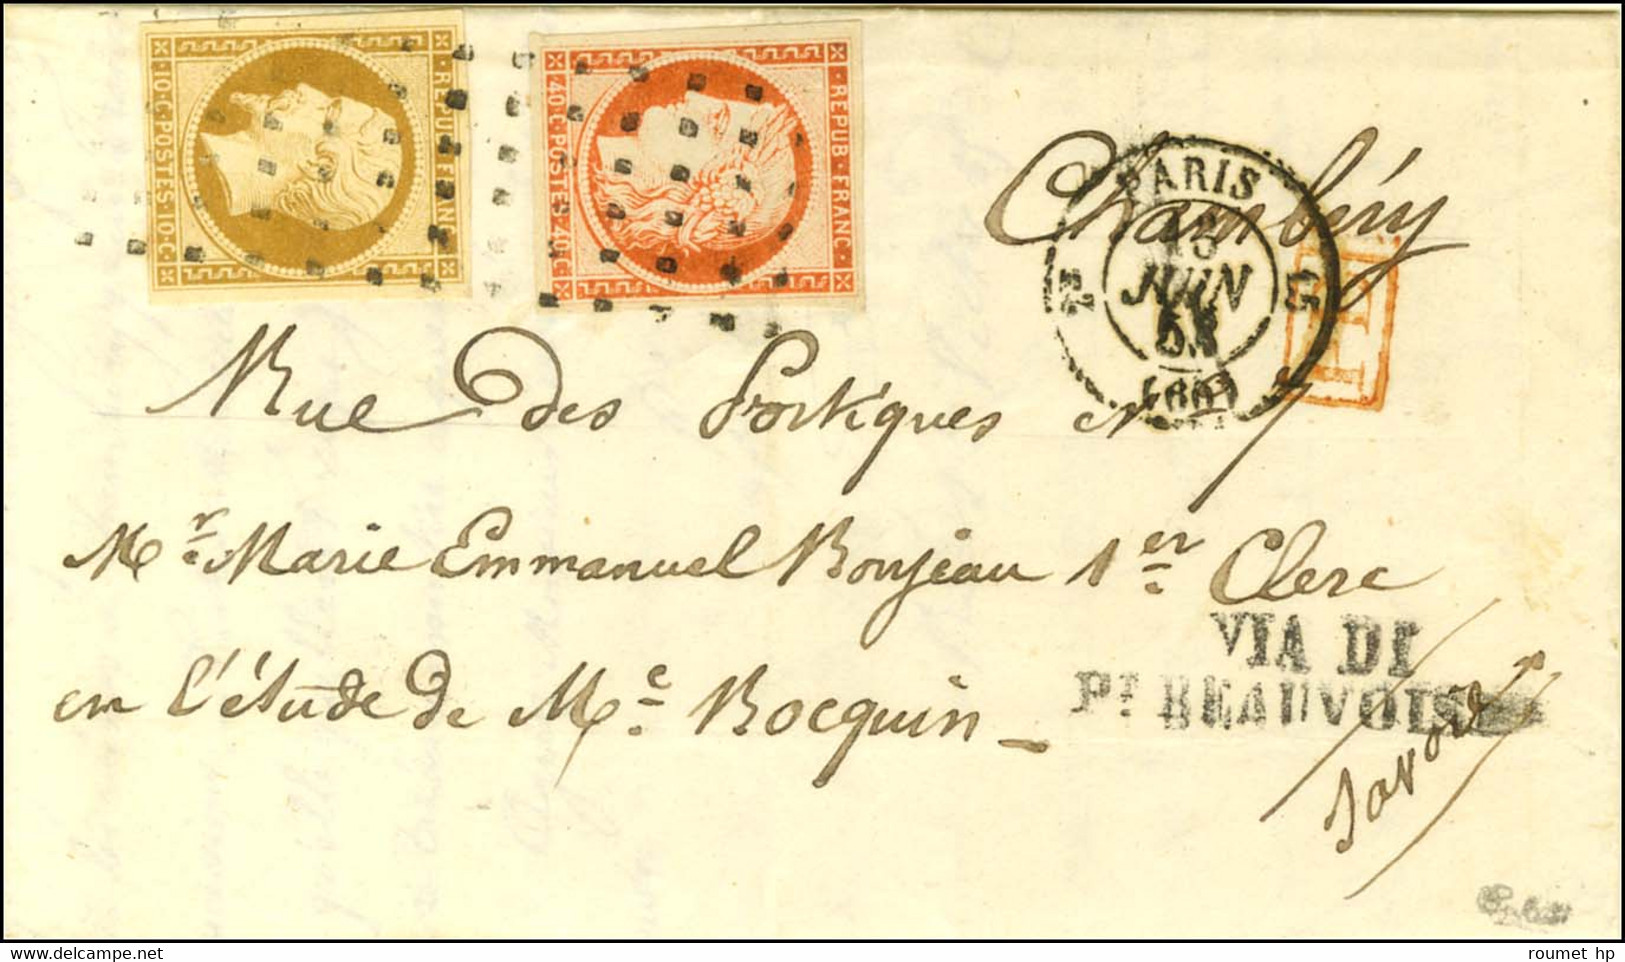 REPUB·FRANC·
10·C·POSTES·10·C·
REPUB·FRANC·
40·C·POSTES·40·C·
Chambéry
PARIS
JUIN
(60)
15
Rue des Portiques N° 7
Mr. Marie Emmanuel Bonjean 1er Clerc
en l'étude de Me. Bocquin
VIA DI
PT BEAUVOISIN
Savoie
roumet hp
www.delcampe.net